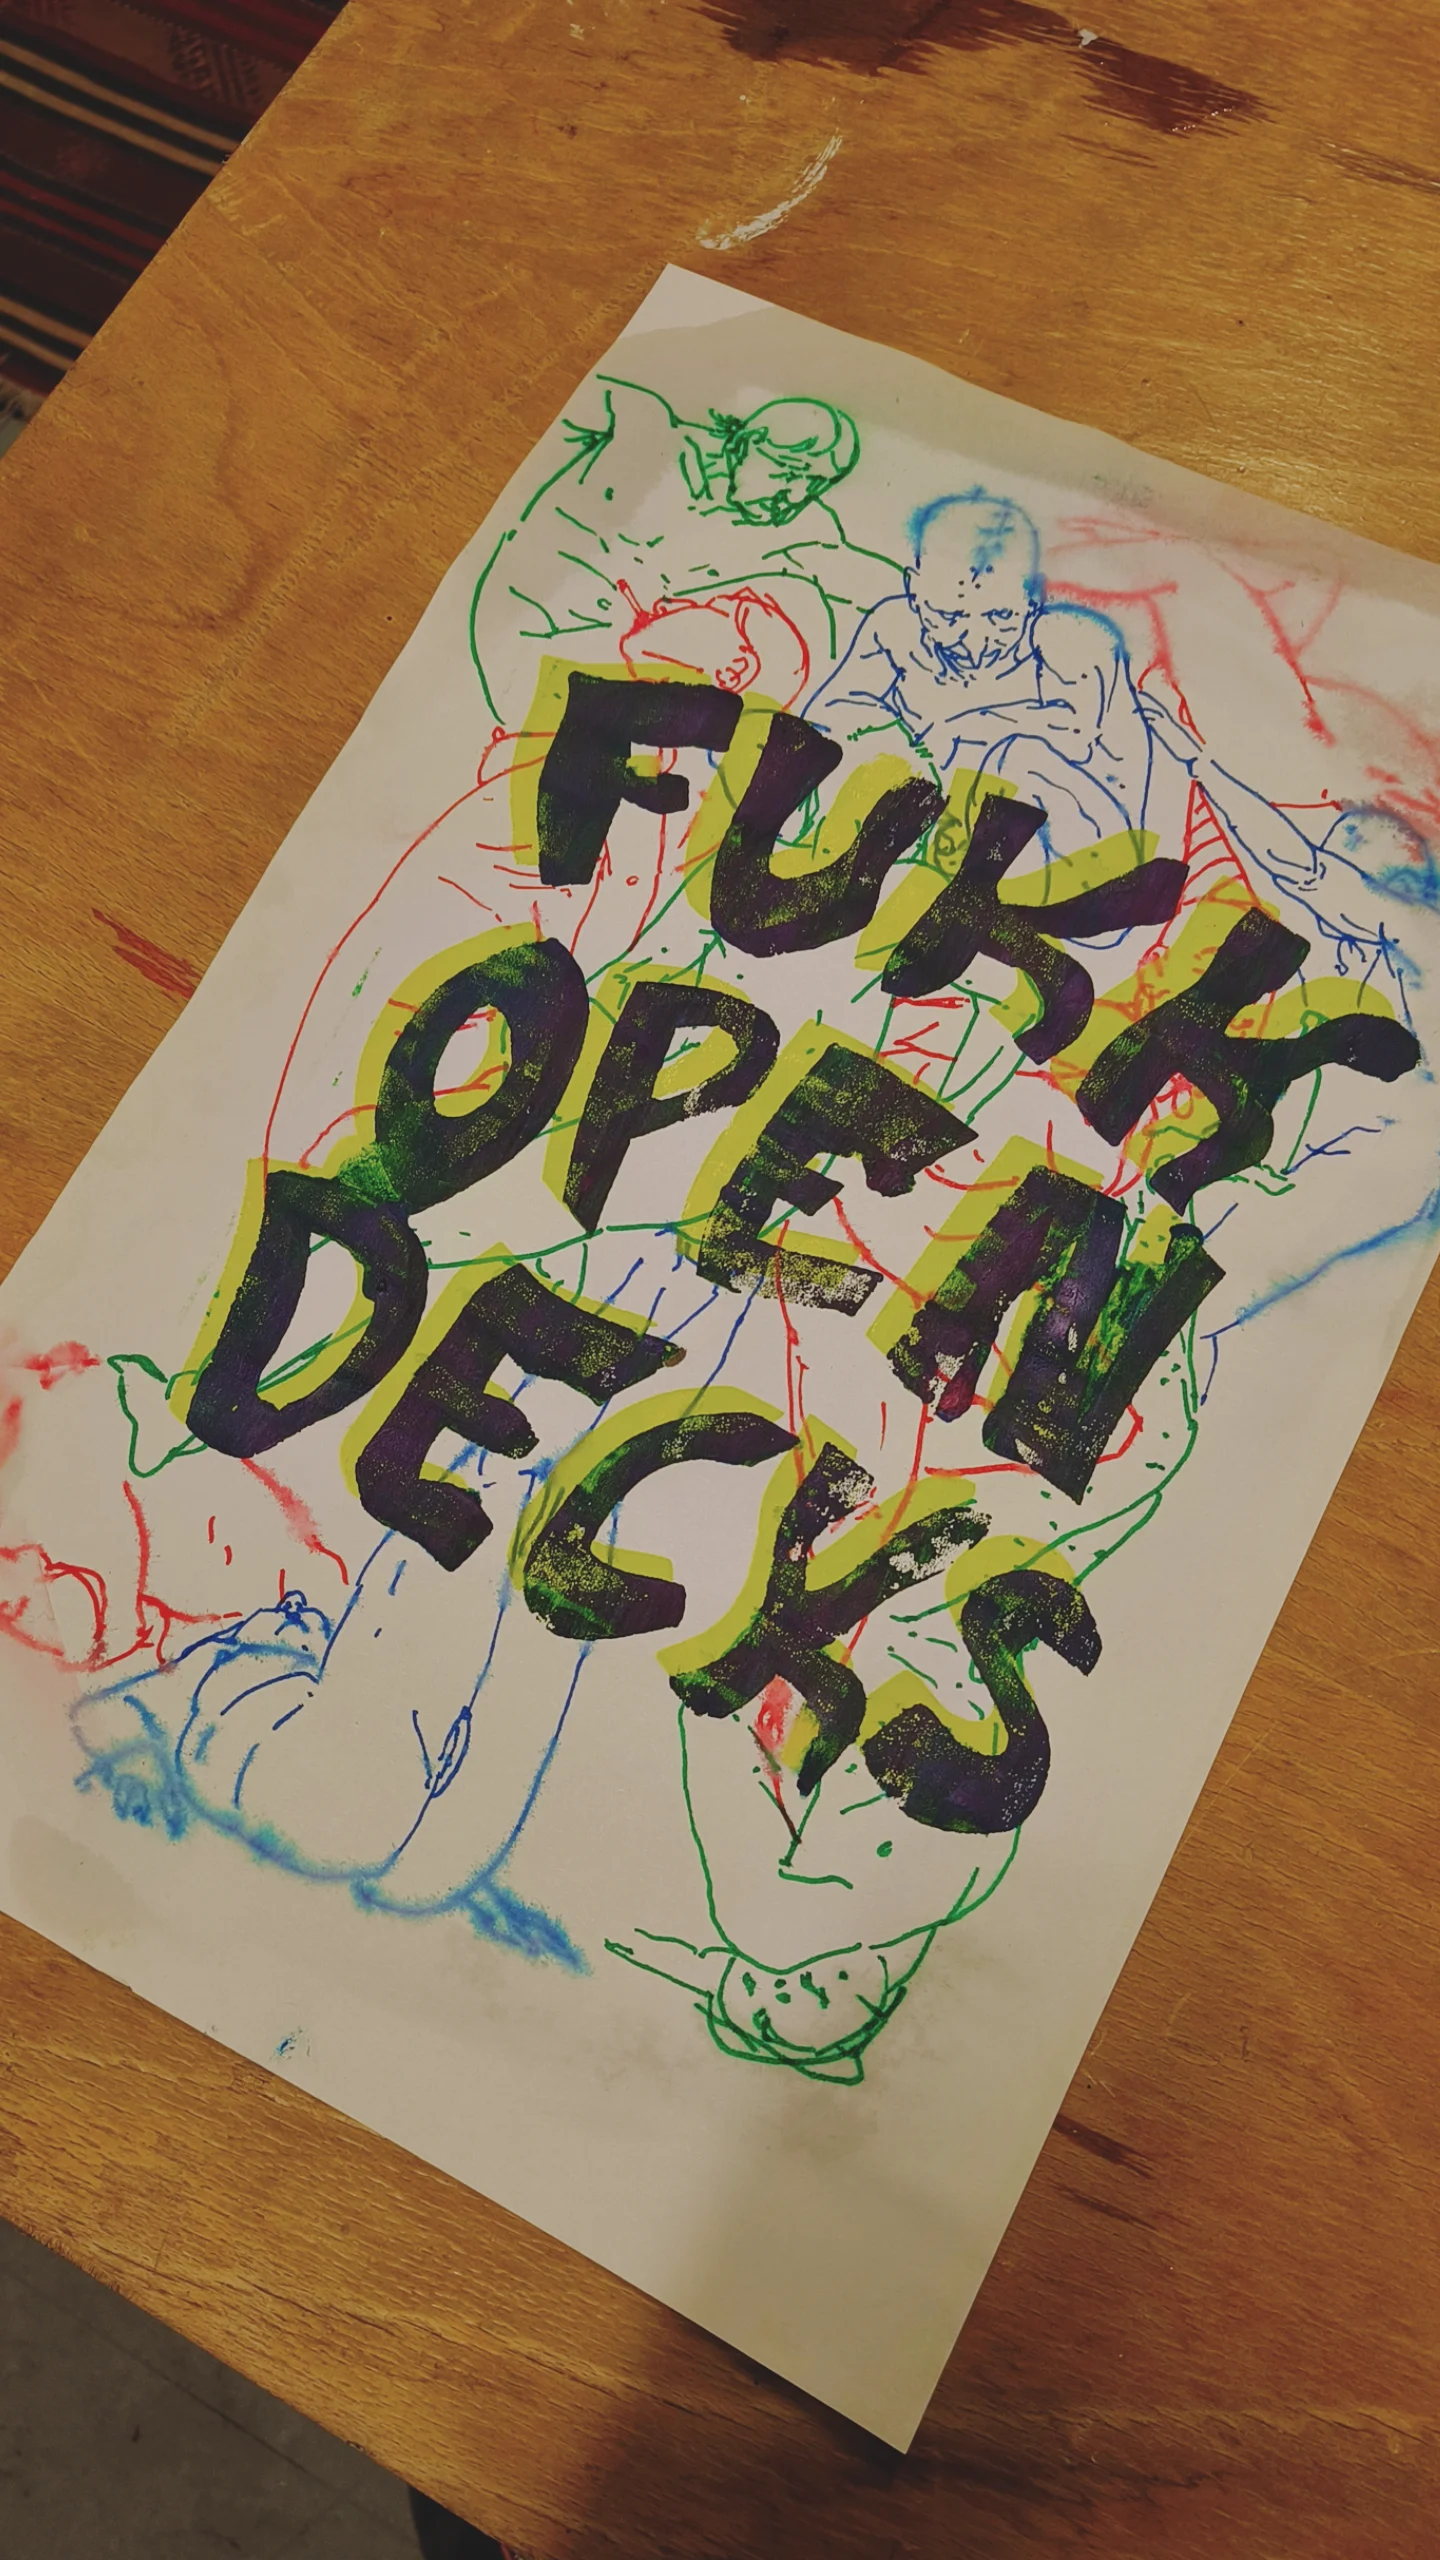 FUKK
OPEN
DECKS